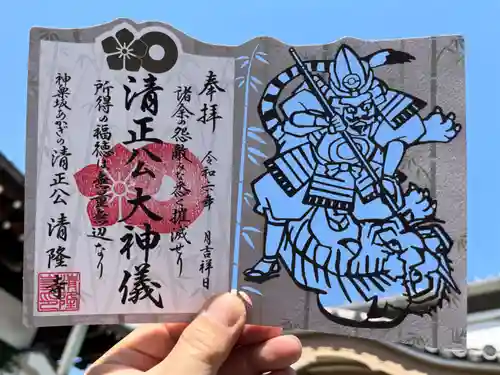 奉拝
令和二年 月吉祥日
諸余の怨敵みな悉く摧滅せり
清正公大神儀
所得の福徳は無量無辺なり
神楽坂あかぎの清正公 清隆寺